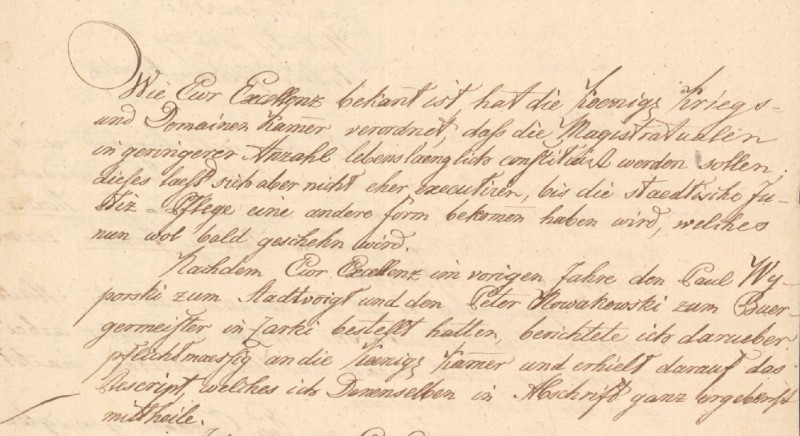 Wie Eur Excellenz bekant ist, hat die Koenigl Kriegs-
und Domainen Kam̄er verordnet, daſs die Magistratualen
in geringerer Anzahl lebenslaenglich conſtituirt werden sollen;
dieſes laeſt sich aber nicht eher executiren, bis die staedtische Ju-
stiz-Pflege eine andere form bekom̄en haben wird, welches
nun wol bald geschehn wird.
Nachdem Eur Excellenz im vorigen Jahre den Paul Wy-
porski zum Stadtvoigt und den Peter Nowakowski zum Buer-
germeiſter in Zarki bestellt hatten, berichtete ich darueber
pflichtmaeſsig an die Koenigl Kam̄er und erhielt darauf das
Rescript, welches ich Denenselben in Abschrift ganz ergebenſt
mittheile.